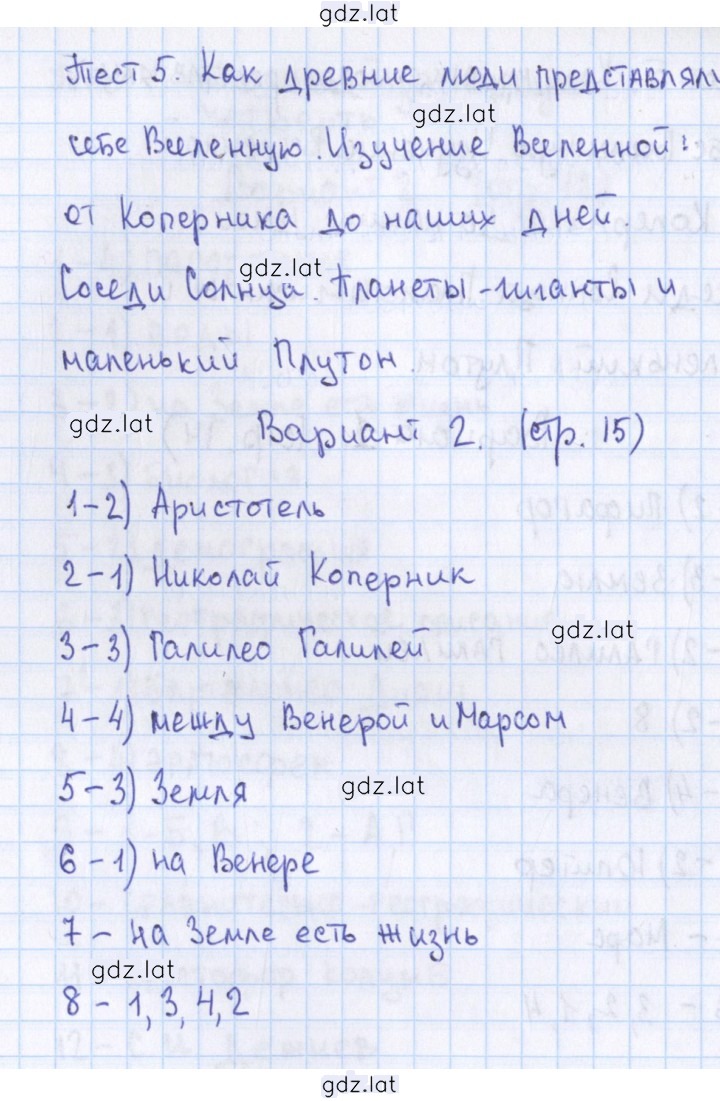 gdz.lat
Тест 5. Как древние люди представляли
gdz.lat
себе Вселенную. Изучение Вселенной:
от Коперника до наших дней.
gdz.lat
Соседи Солнца. Планеты-гиганты и
маленький Плутон.
gdz.lat
Вариант 2. (стр. 15)
1-2) Аристотель
2-1) Николай Коперник
gdz.lat
3-3) Галилео Галилей
4-4) между Венерой и Марсом
5-3) Земля
gdz.lat
6-1) на Венере
7 - на Земле есть жизнь
gdz.lat
8 - 1, 3, 4, 2
gdz.lat